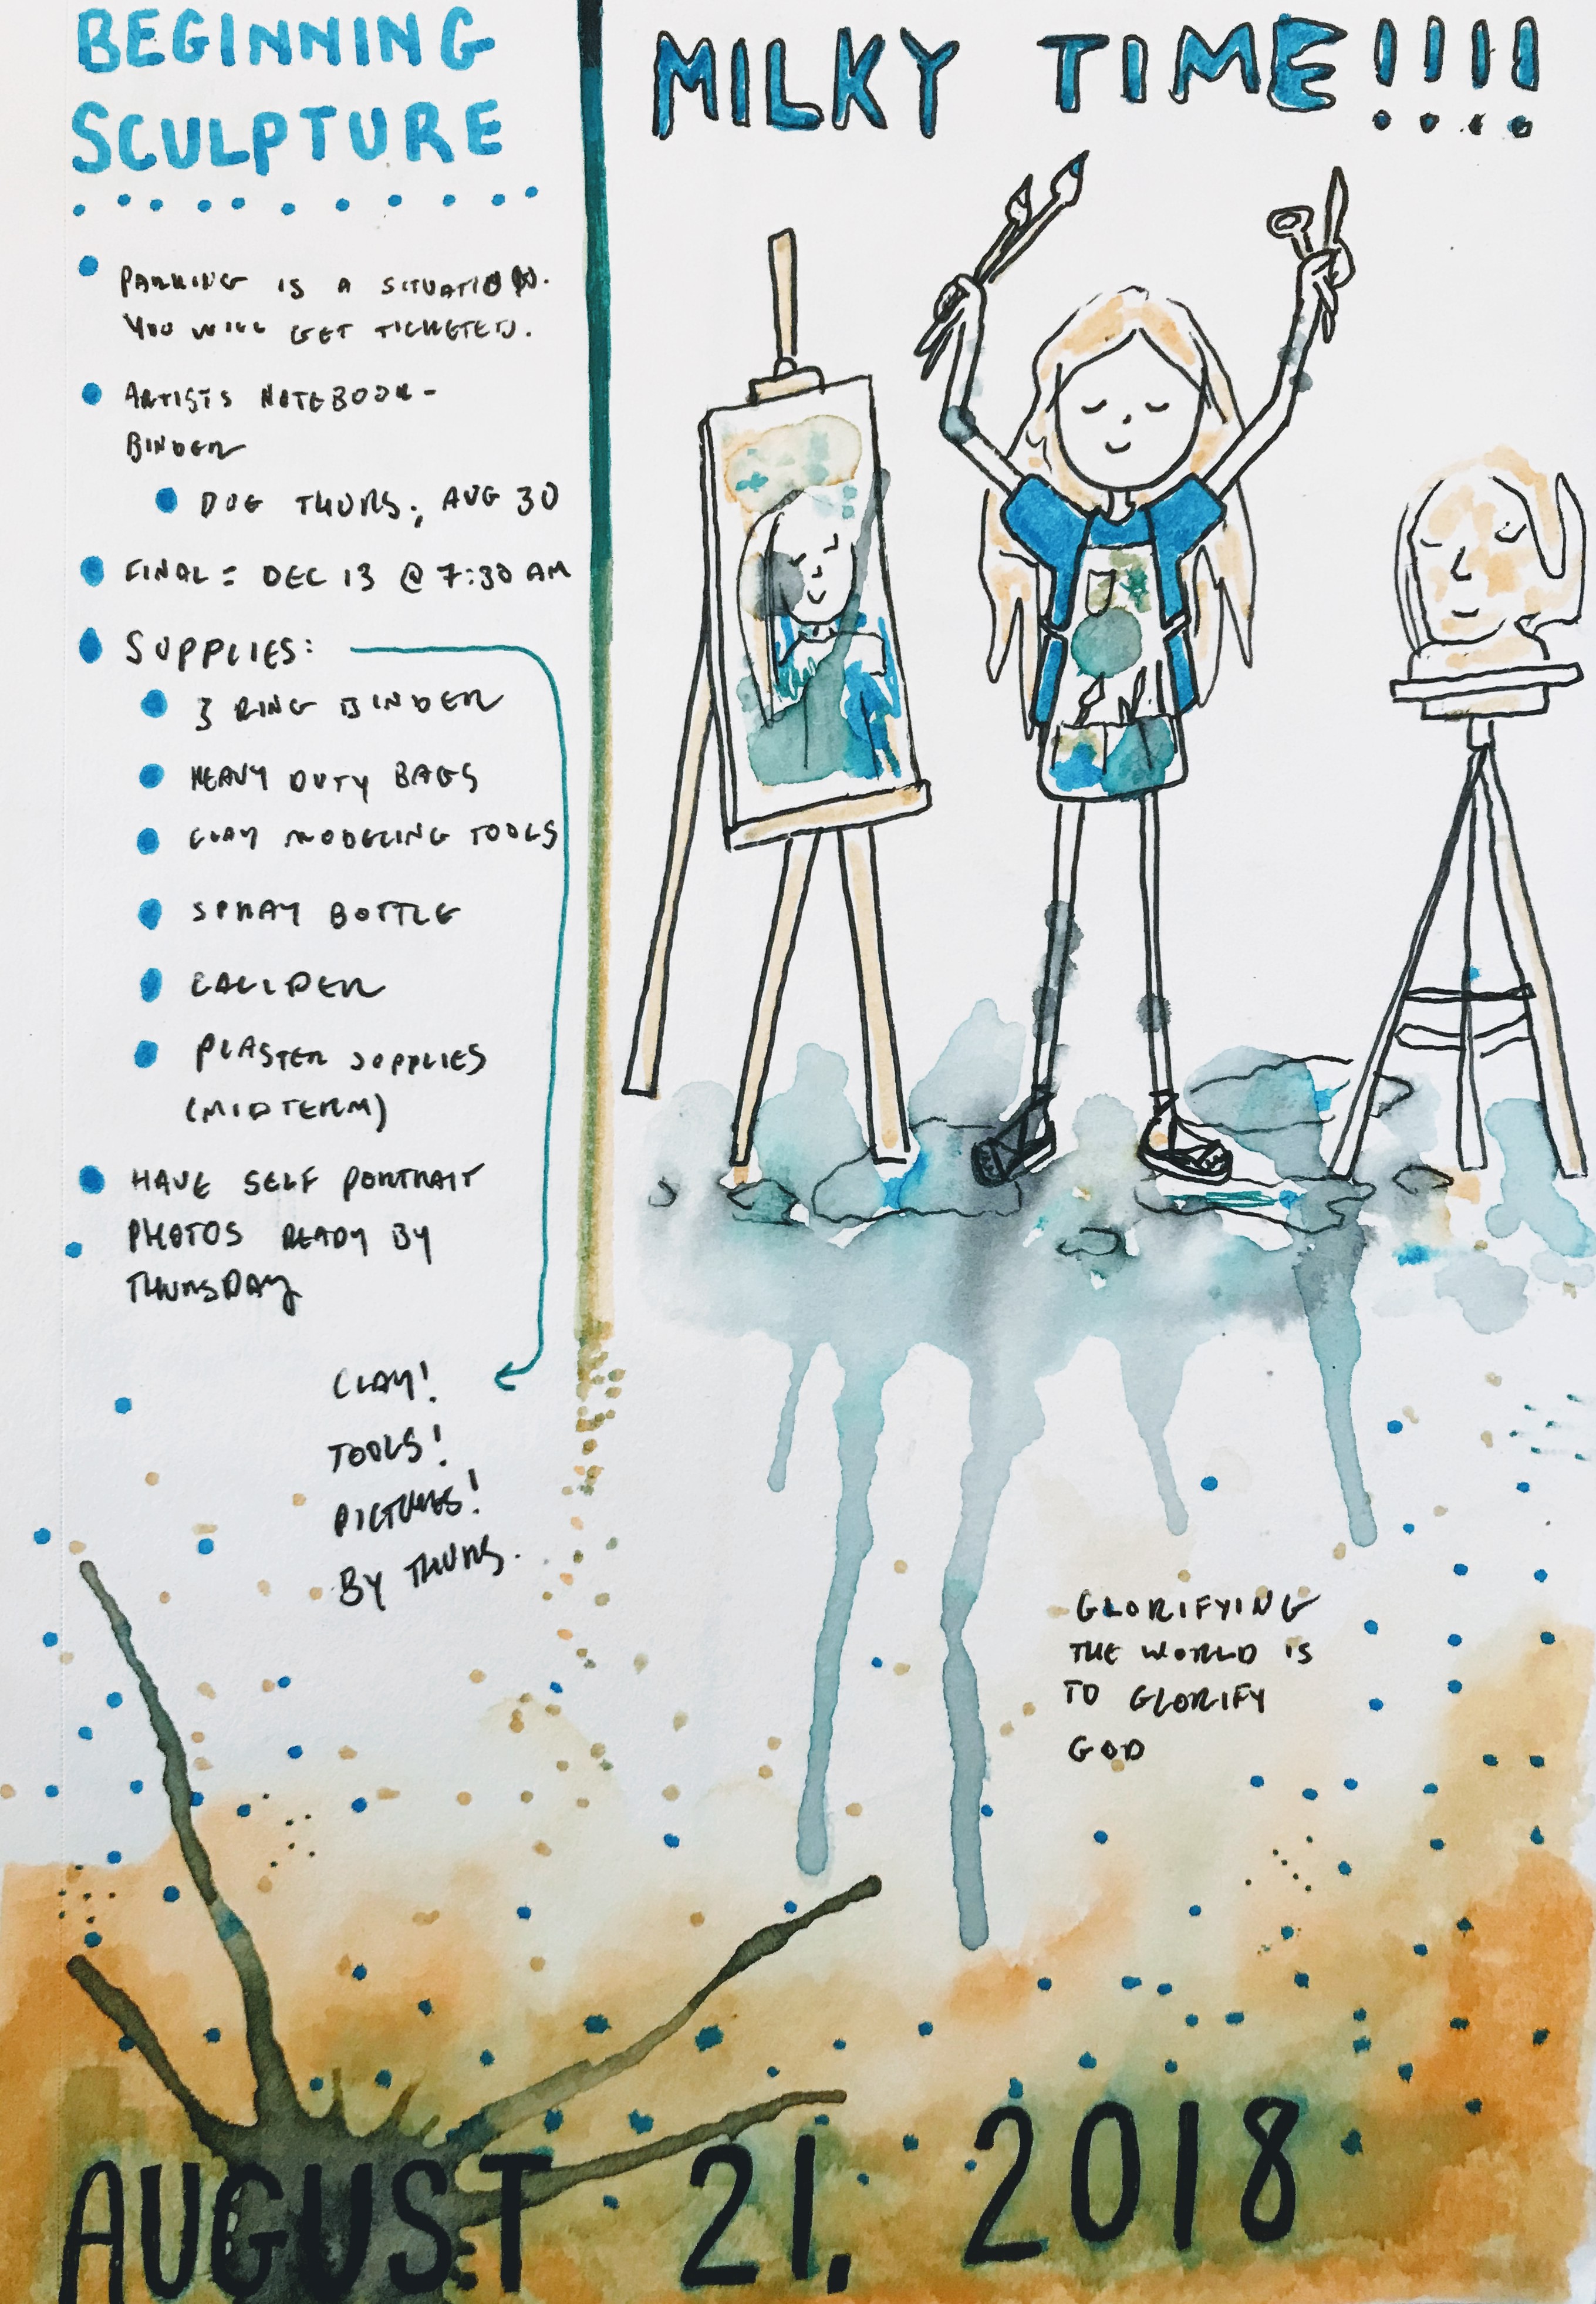 BEGINNING
SCULPTURE
PARKING IS A SITUATION.
YOU WILL GET TICKETED.
ARTISTS NOTEBOOK-
BINDER
DUE THURS., AUG 30
FINAL = DEC 13 @ 7:30 AM
SUPPLIES:
3 RING BINDER
HEAVY DUTY BAGS
CLAY MODELING TOOLS
SPRAY BOTTLE
CALIPER
PLASTER SUPPLIES
(MIDTERM)
HAVE SELF PORTRAIT
PHOTOS READY BY
THURSDAY
CLAY!
TOOLS!
PICTURES!
BY THURS.
MILKY TIME!!!!
GLORIFYING
THE WORLD IS
TO GLORIFY
GOD
AUGUST 21, 2018